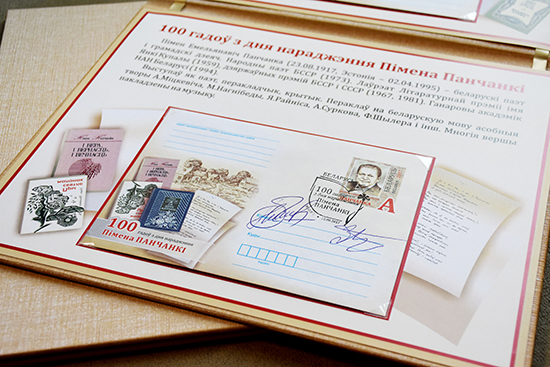 100 гадоў з дня нараджэння Пімена Панчанкі
Пімен Емельянавіч Панчанка (23.08.1917, Эстонія – 02.04.1995) – беларускі паэт
і грамадскі дзеяч. Народны паэт БССР (1973). Лаўрэат Літаратурнай прэміі імя
Янкі Купалы (1959), дзяржаўных прэмій БССР і СССР (1967, 1981). Ганаровы акадэмік
НАН Беларусі (1994).
Выступаў як паэт, перакладчык, крытык. Пераклаў на беларускую мову асобныя
творы А.Міцкевіча, М.Нагнібеды, Я.Райніса, А.Суркова, Ф.Шылера і інш. Многія вершы
пакладзены на музыку.
І ВЕРА,
І ВЕРНАСЦЬ,
І ВЕЧНАСЦЬ
БЕЛАРУСЬ
A
100 гадоў
з дня нараджэння
Пімена
ПАНЧАНКІ
100 гадоў з дня нараджэння
Пімена ПАНЧАНКІ